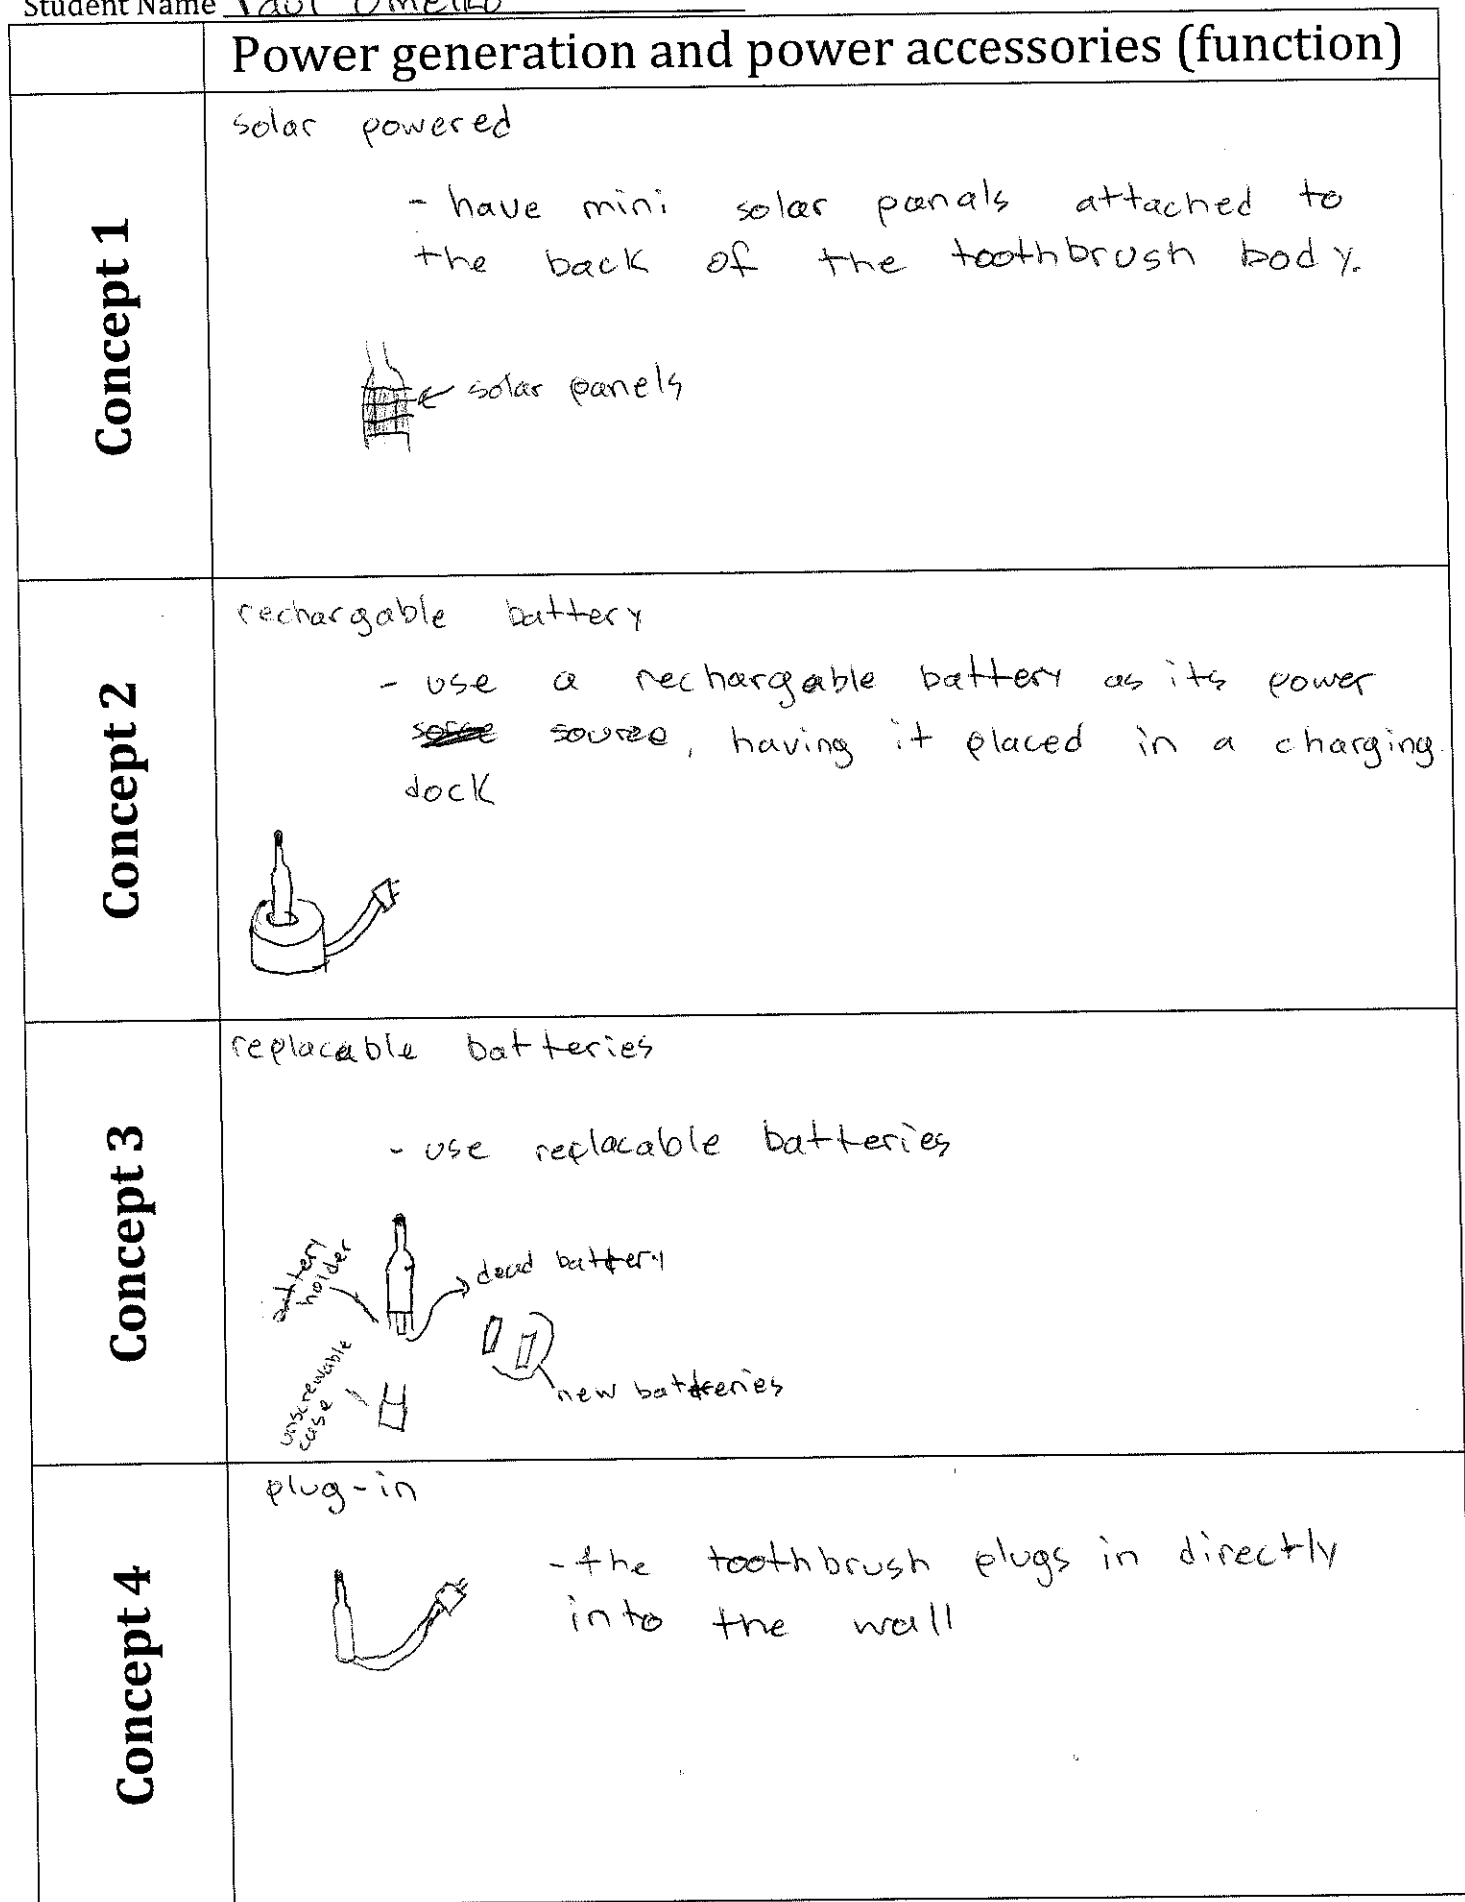 Student Name Paul
Power generation and power accessories (function)
Concept 1
solar powered
- have mini solar panals attached to
the back of the toothbrush body.
solar panels
Concept 2
rechargable battery
- use a rechargable battery as its power
source, having it placed in a charging
dock
Concept 3
replacable batteries
- use replacable batteries
battery
holder
dead battery
unscrewable
case
new batteries
Concept 4
plug-in
- the toothbrush plugs in directly
into the wall